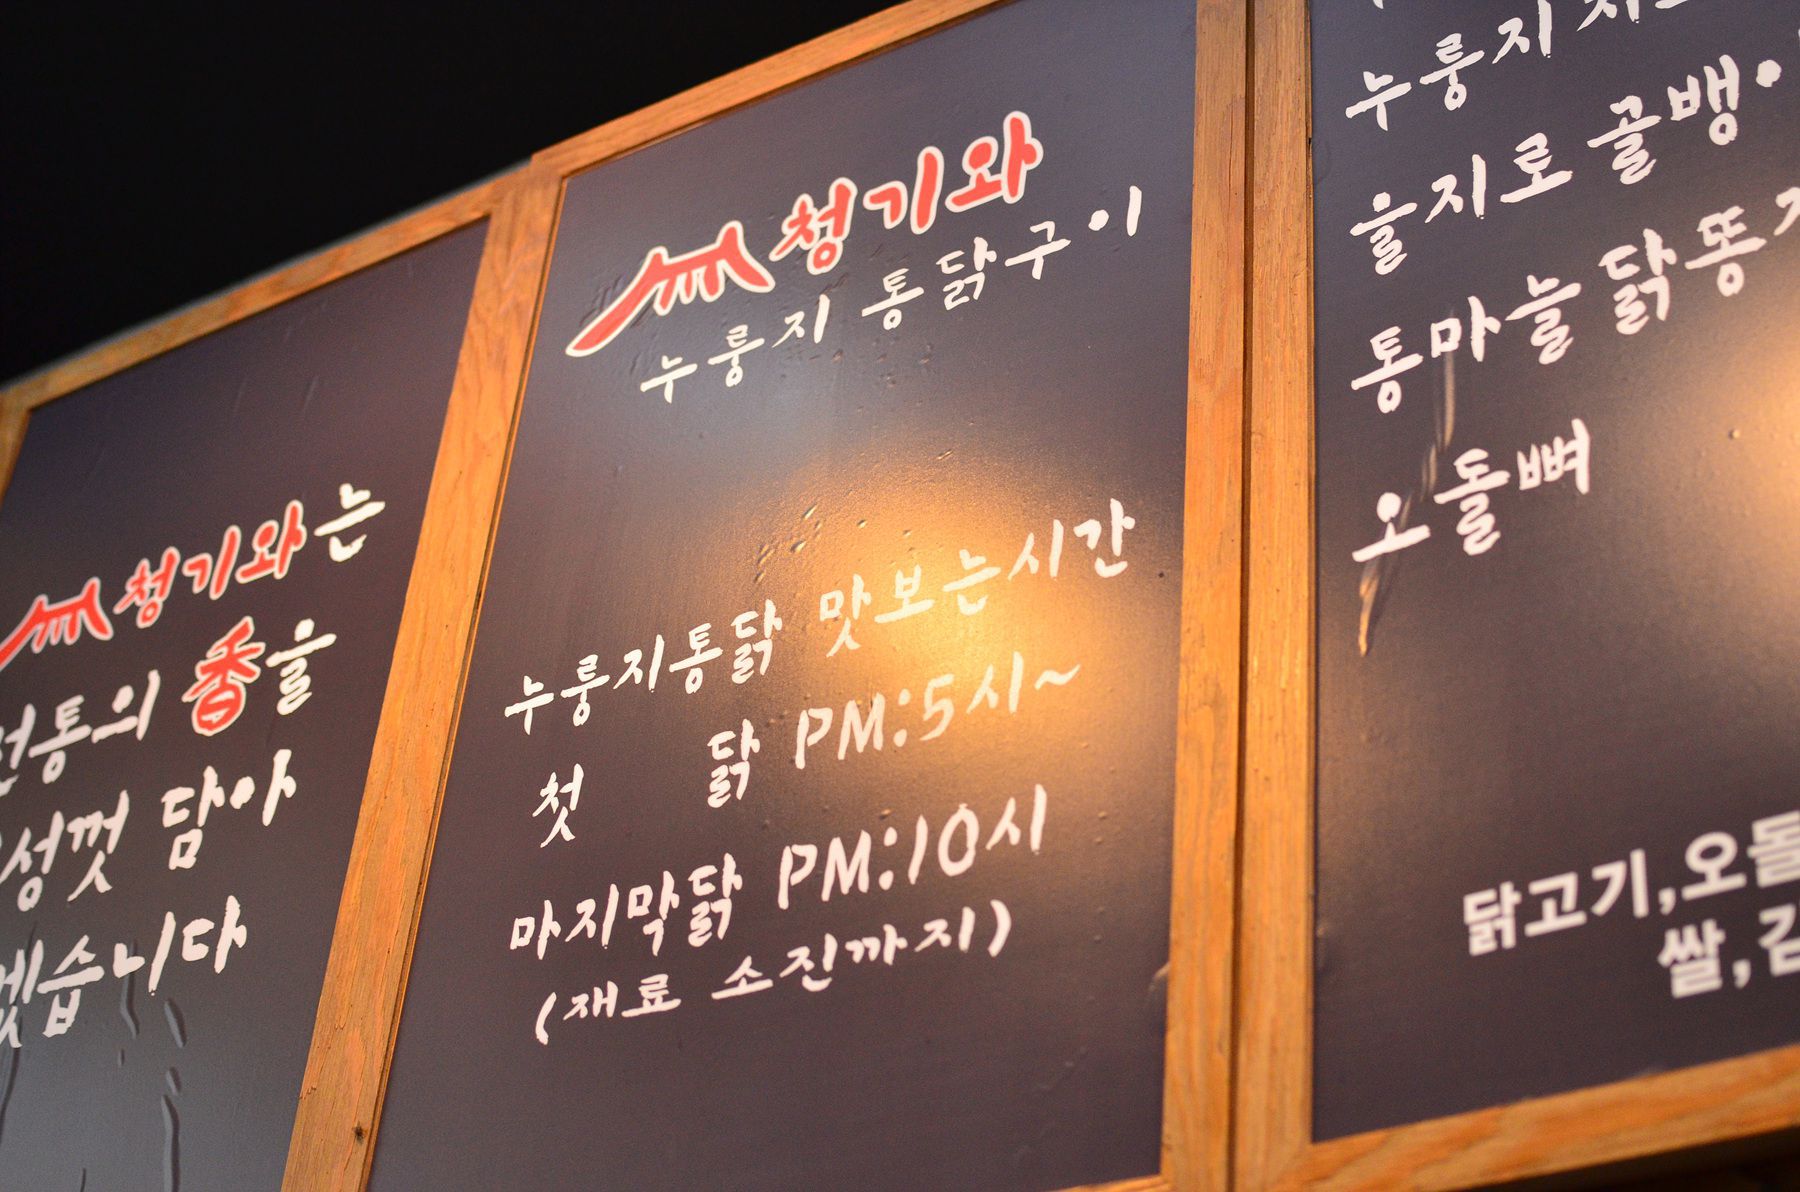 청기와는
전통의 香을
성껏 담아
겠습니다
청기와
누룽지 통닭구이
누룽지통닭 맛보는시간
첫 닭 PM:5시~
마지막닭 PM:10시
(재료 소진까지)
누룽지
을지로 골뱅이
통마늘 닭똥
오돌뼈
닭고기,오돌
쌀,김